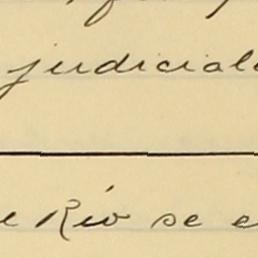 judiciale
e Río se e